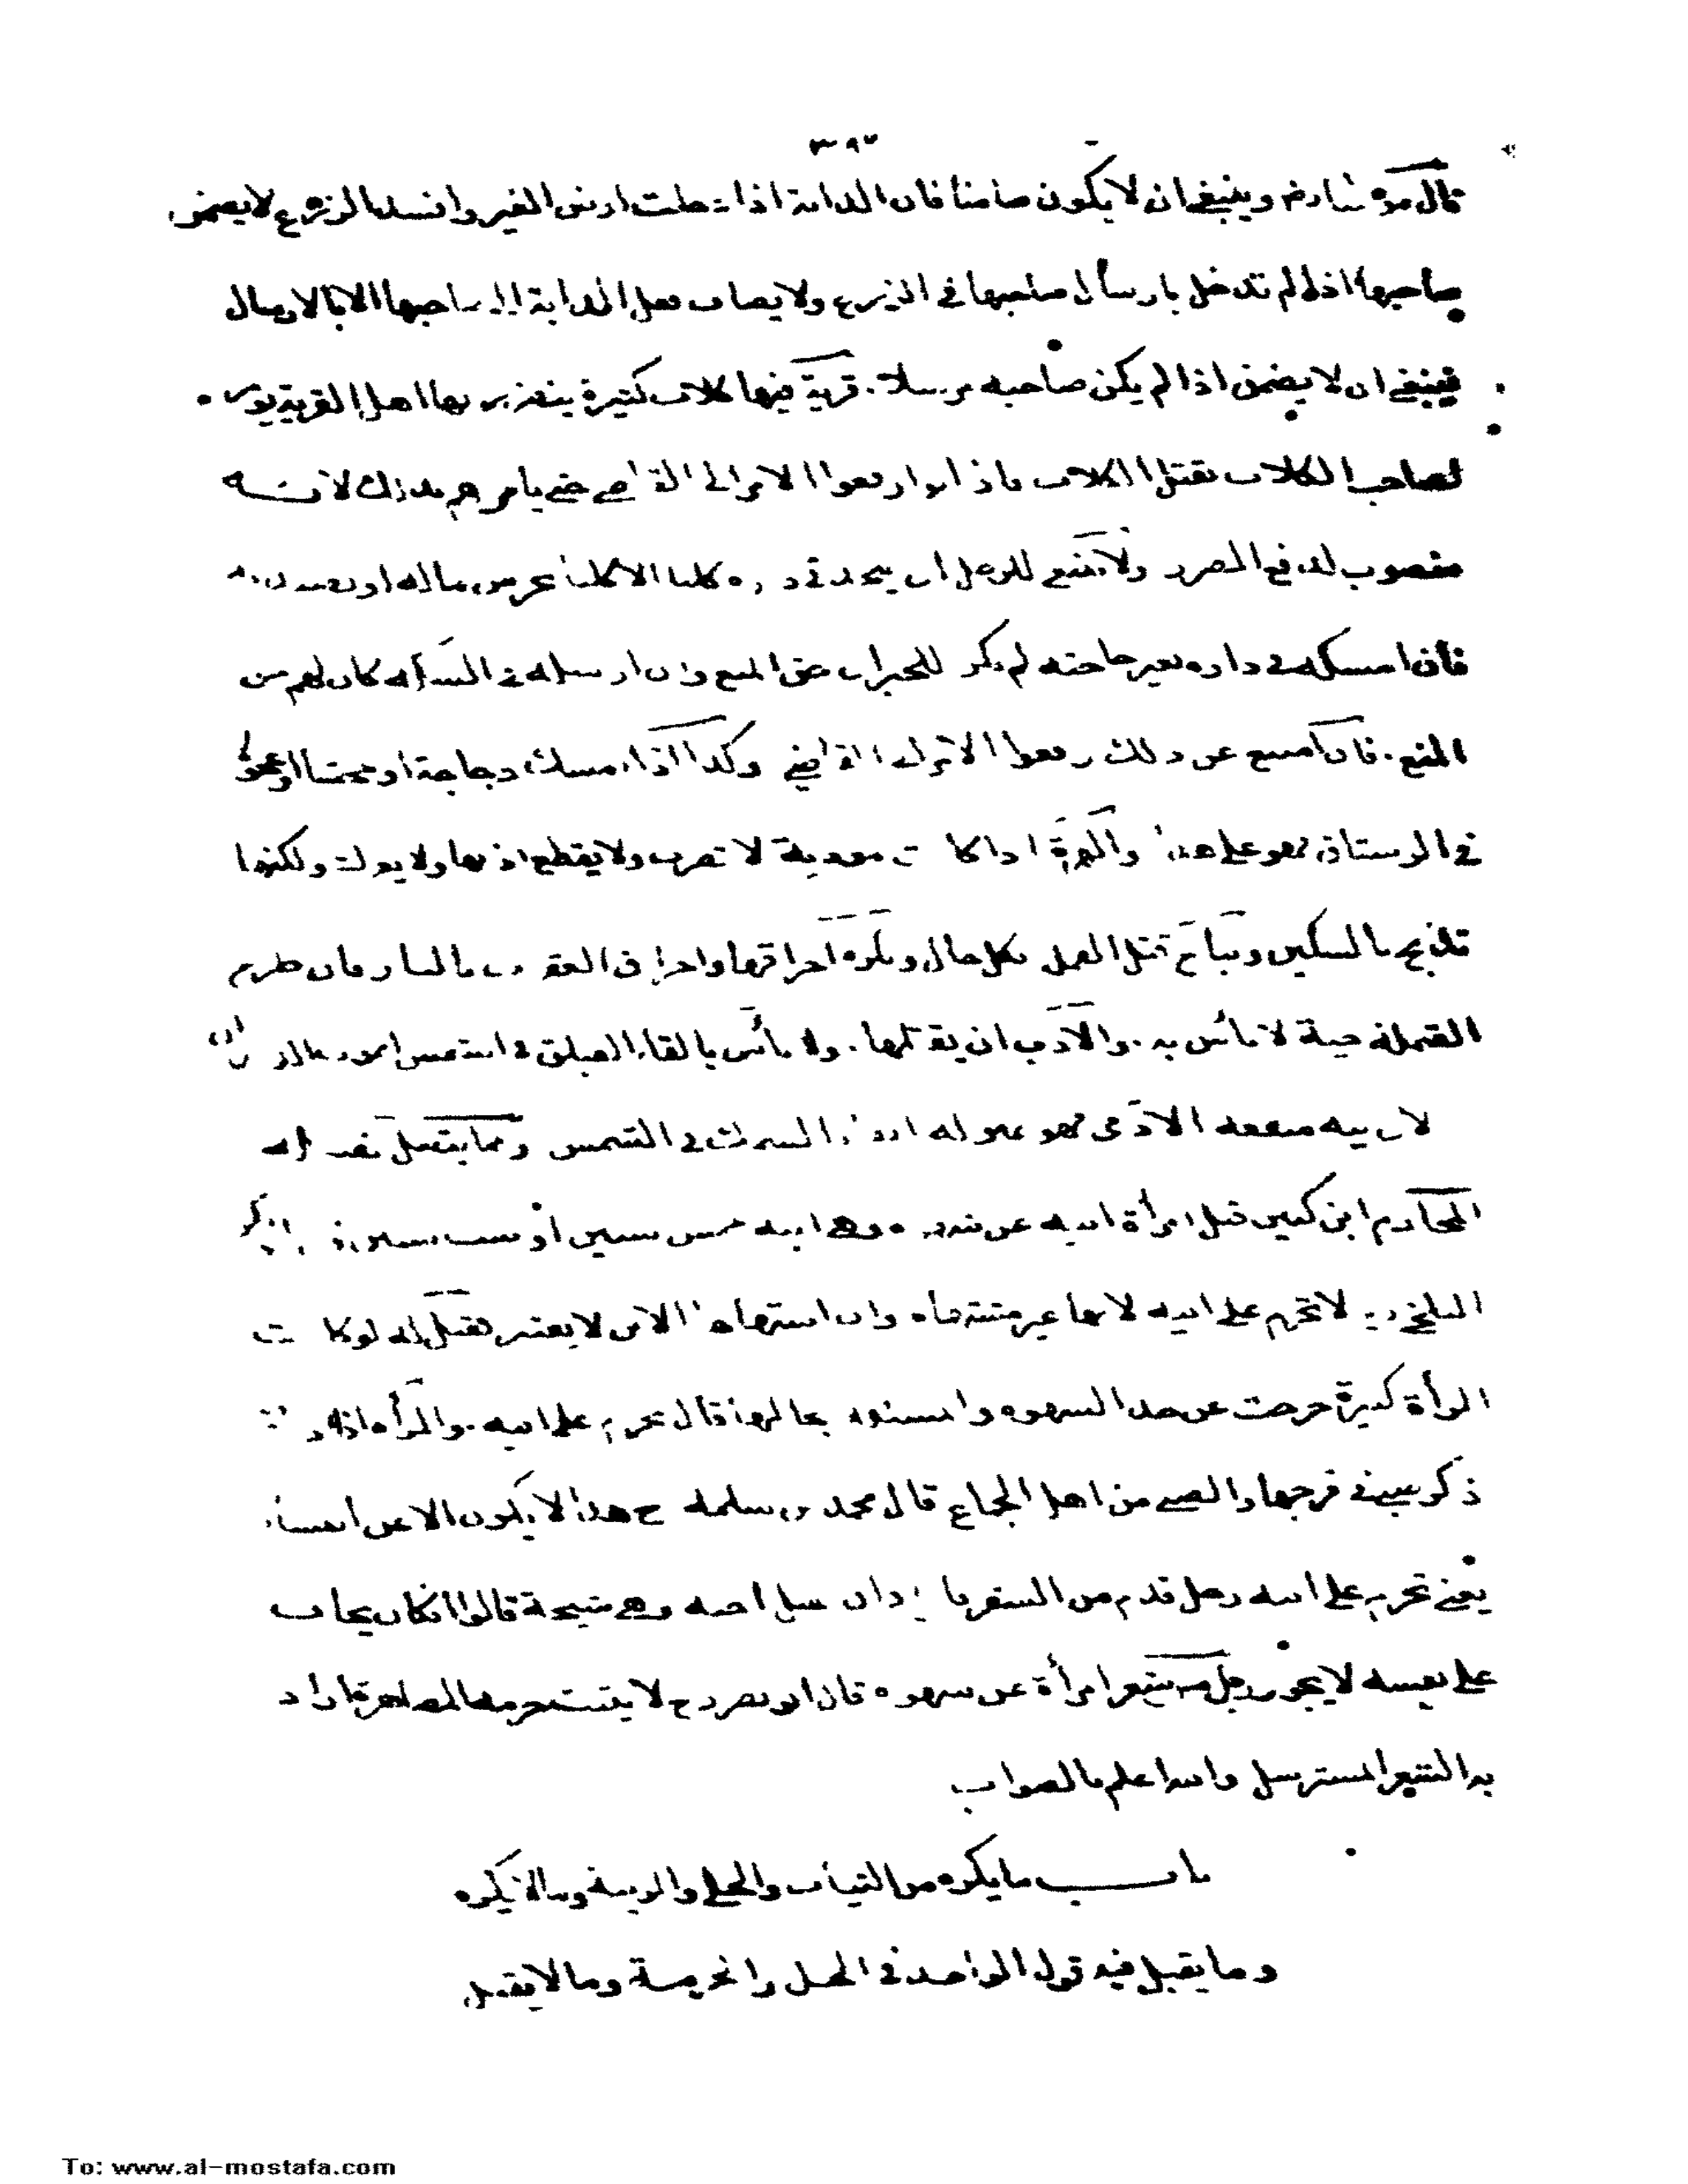 ٣٩٣
قال مو وينبغي ان لا يكون ضامنا فان الدابة اذا دخلت ارض الغير وافسدت الزرع لا يضمن
صاحبها اذا لم تدخل بارسال صاحبها في الزرع ولا يضاف فعل الدابة الى صاحبها الا بالارسال
فينبغي ان لا يضمن اذا لم يكن صاحبه مرسلا . قرية فيها كلاب كثيرة يتضرر بها اهل القرية يؤمر
لصاحب الكلاب بقتل الكلاب فاذا ابوا رفعوا الامر الى القاضي حتى يامرهم بذلك لانه
منصوب لدفع الضرر ولا ينبغي للرجل ان يتخذ في داره كلبا الا كلبا يحرس ماله
فان امسكه في داره بغير حاجته لم يكن للجيران حق المنع وان ارسله في السكة كان لهم من
المنع . فان امتنع عن ذلك رفعوا الامر الى القاضي وكذا اذا امسك دجاجة او جحشا او عجولا
في الرستاق فهو على هذا والهرة اذا كانت موذية لا تضرب ولا يقطع اذنها ولا ولكنها
تذبح بالسكين ويباح قتل القمل بكل حال ويكره احراقها واحراق العقرب بالنار فان طرح
القملة حية لا بأس به . والادب ان يقتلها . ولا بأس بالقاء الفيلق في الشمس
لان فيه منفعة الادمي فهو القاء السمك في الشمس ومما يتصل
المحارم ابن كبير قبل امرأة ابيه عن شهوة وهي ابنة خمس سنين او ست سنين
البلخي لا تحرم على ابيه لانها غير مشتهاة وان اشتهاها الابن لا يعتبر فقيل له لو كانت
المرأة كبيرة خرجت عن حد الشهوة والمسئلة بحالها قال تحرم على ابيه . والمرأة اذا
ذكر صبي في فرجها والصبي من اهل الجماع قال محمد بن سلمة ح هذا لا يكون الا عن
يعني تحرم على ابيه رجل قدم من السفر فاراد ان يقبل اخته وهي شيخة قالوا ان كان يخاف
على نفسه لا يجوز رجل مس شعر امرأة عن شهوة قال ابو نصر رح لا يثبت حرمة المصاهرة اراد
به الشعر المسترسل والله اعلم بالصواب
باب ما يكره من الثياب والحلي والزينة وما لا يكره
وما يقبل فيه قول الواحد في الحل والحرمة وما لا يقبل
To: www.al-mostafa.com